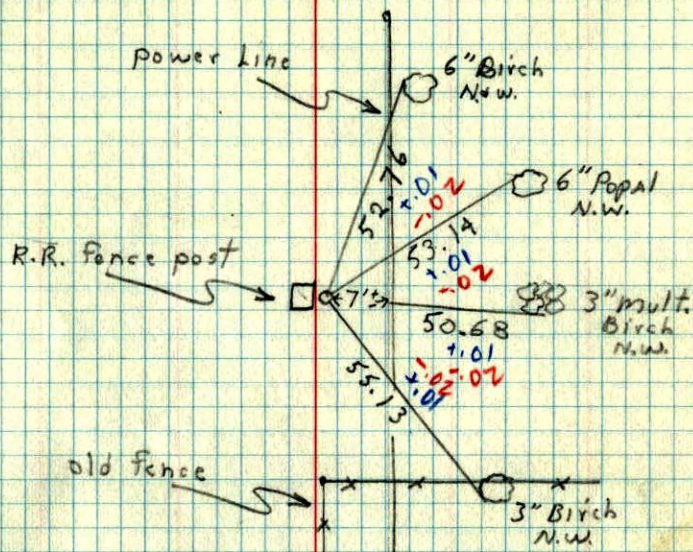 power Line
6" Birch
N.W.
52.76
+.01
-.02
6" Popal
N.W.
53.14
+.01
-.02
R.R. fence post
7'±
3" mult.
Birch
N.W.
50.68
+.01
-.02
55.13
-.02
+.01
old fence
3" Birch
N.W.